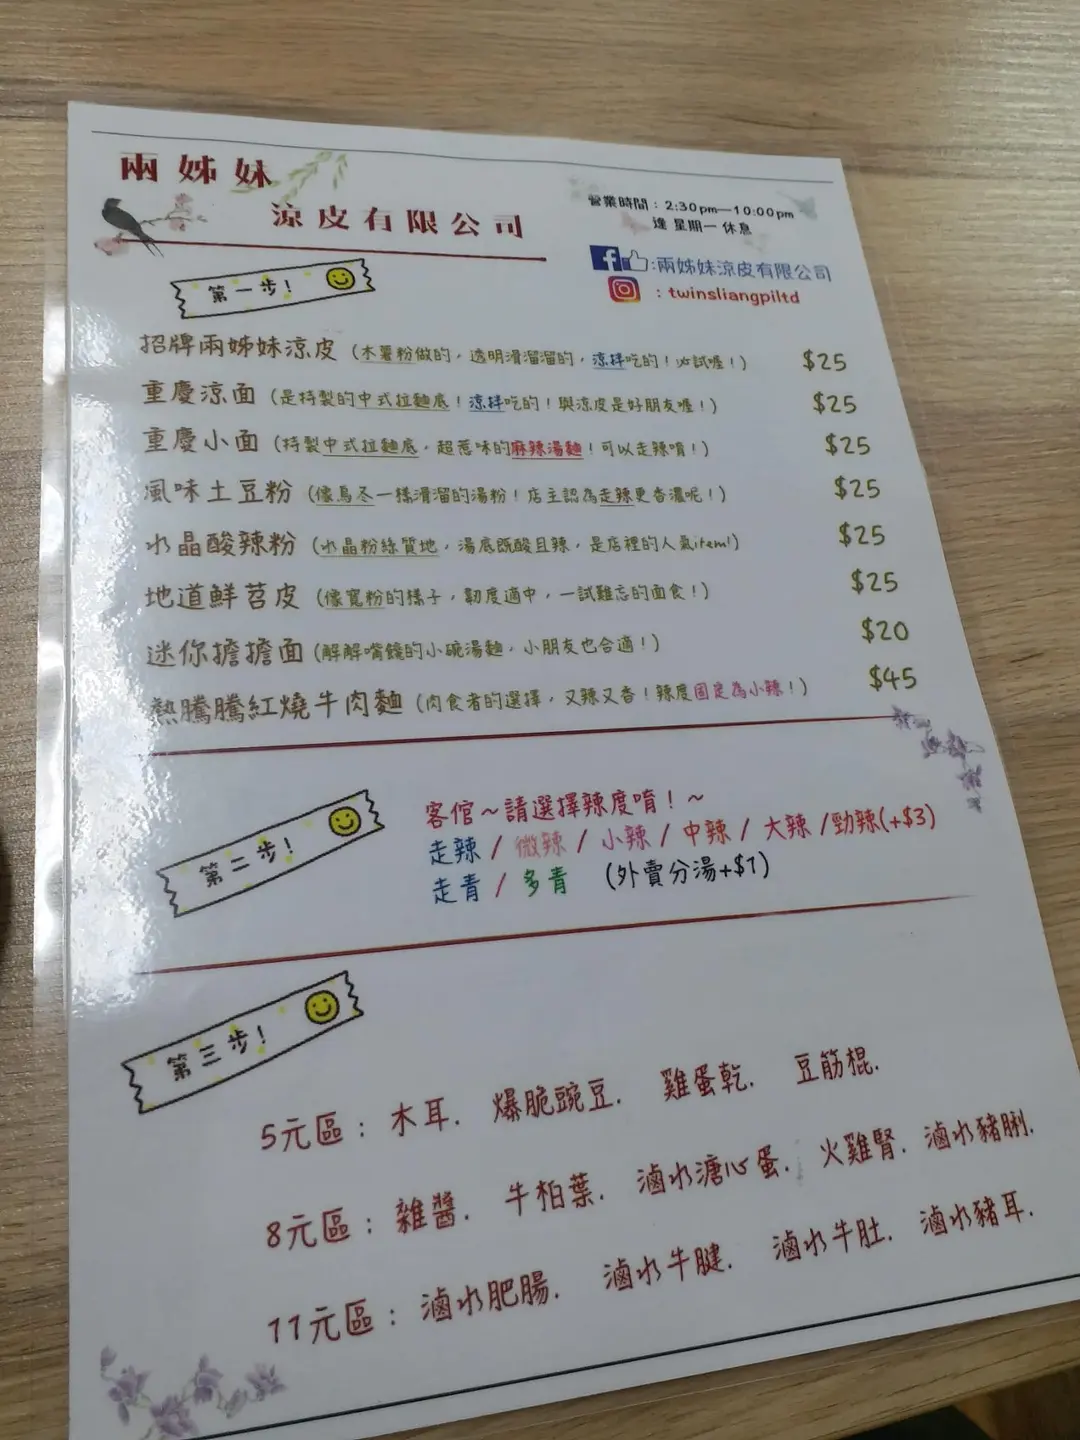 兩姊妹
涼皮有限公司
營業時間：2:30pm—10:00pm
逢 星期一 休息
:兩姊妹涼皮有限公司
: twinsliangpiltd
第一步！
招牌兩姊妹涼皮 (木薯粉做的，透明滑溜溜的，涼拌吃的！必試喔！) $25
重慶涼面 (是特製的中式拉麵底！涼拌吃的！與涼皮是好朋友喔！) $25
重慶小面 (特製中式拉麵底，超惹味的麻辣湯麵！可以走辣唷！) $25
風味土豆粉 (像烏冬一樣滑溜的湯粉！店主認為走辣更香濃呢！) $25
水晶酸辣粉 (水晶粉絲質地，湯底既酸且辣，是店裡的人氣item!) $25
地道鮮苕皮 (像寬粉的樣子，韌度適中，一試難忘的面食！) $25
迷你擔擔面 (解解嘴饞的小碗湯麵，小朋友也合適！) $20
熱騰騰紅燒牛肉麵 (肉食者的選擇，又辣又香！辣度固定為小辣！) $45
第二步！
客倌～請選擇辣度唷！～
走辣 / 微辣 / 小辣 / 中辣 / 大辣 /勁辣(+$3)
走青 / 多青 (外賣分湯+$1)
第三步！
5元區：木耳. 爆脆豌豆. 雞蛋乾. 豆筋棍.
8元區：雜醬. 牛柏葉. 滷水溏心蛋. 火雞腎. 滷水豬脷.
11元區：滷水肥腸. 滷水牛腱. 滷水牛肚. 滷水豬耳.